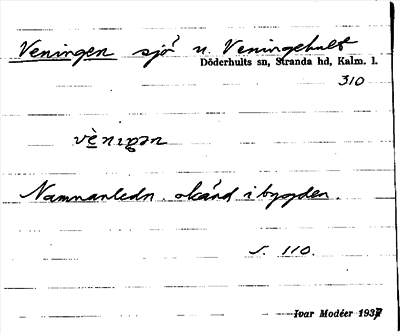 Veningen sjö n. Veningehult
Döderhults sn, Stranda hd, Kalm. l.
310
vèniŋən
Namnanledn. okänd i bygden.
s. 110.
Ivar Modéer 1937